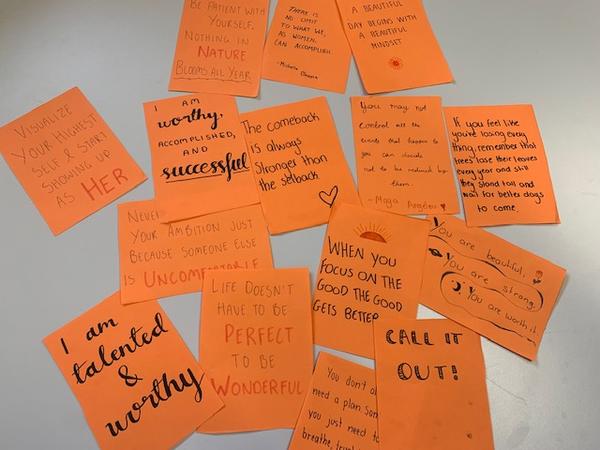 BE PATIENT WITH
YOURSELF.
NOTHING IN
NATURE
BLOOMS ALL YEAR
THERE IS
NO LIMIT
TO WHAT WE,
AS WOMEN,
CAN ACCOMPLISH.
- Michelle Obama
A BEAUTIFUL
DAY BEGINS WITH
A BEAUTIFUL
MINDSET
VISUALIZE
YOUR HIGHEST
SELF & START
SHOWING UP
AS HER
I AM
worthy,
ACCOMPLISHED,
AND
successful
The comeback
is always
stronger than
the setback
You may not
control all the
events that happen to
you can decide
not to be reduced by
them.
- Maya Angelou
If you feel like
you're losing every
thing, remember that
trees lose their leaves
every year and still
they stand tall and
wait for better days
to come.
NEVER
YOUR AMBITION JUST
BECAUSE SOMEONE ELSE
IS UNCOMFORTABLE
WHEN YOU
FOCUS ON THE
GOOD THE GOOD
GETS BETTER
You are beautiful.
You are strong.
You are worth it.
I am
talented
&
worthy
LIFE DOESN'T
HAVE TO BE
PERFECT
TO BE
WONDERFUL
You don't
need a plan
you just need to
breathe,
CALL IT
OUT!